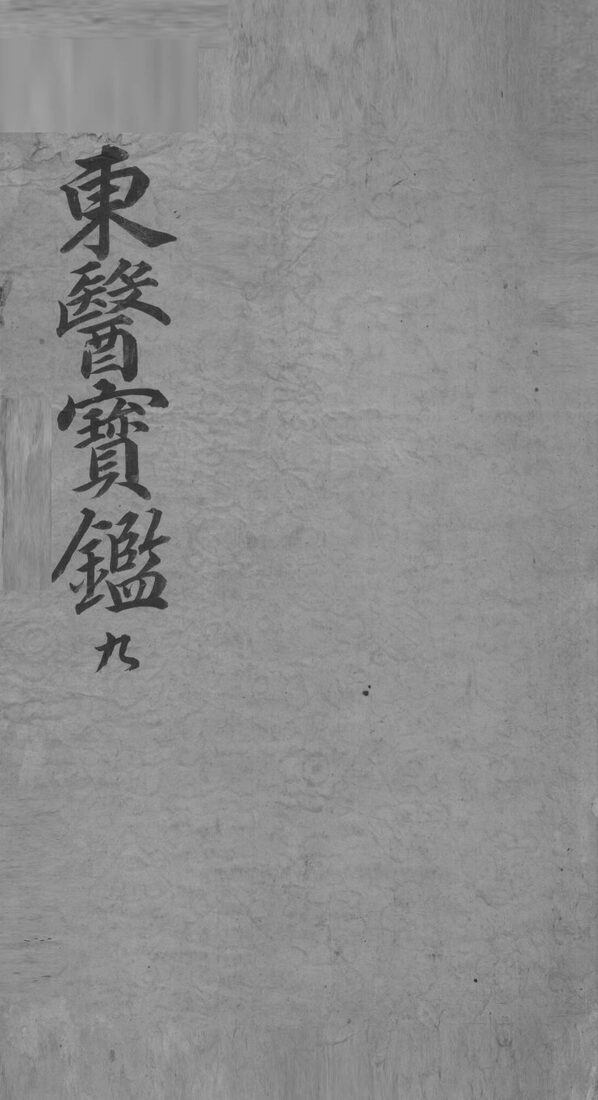 東醫寶鑑 九